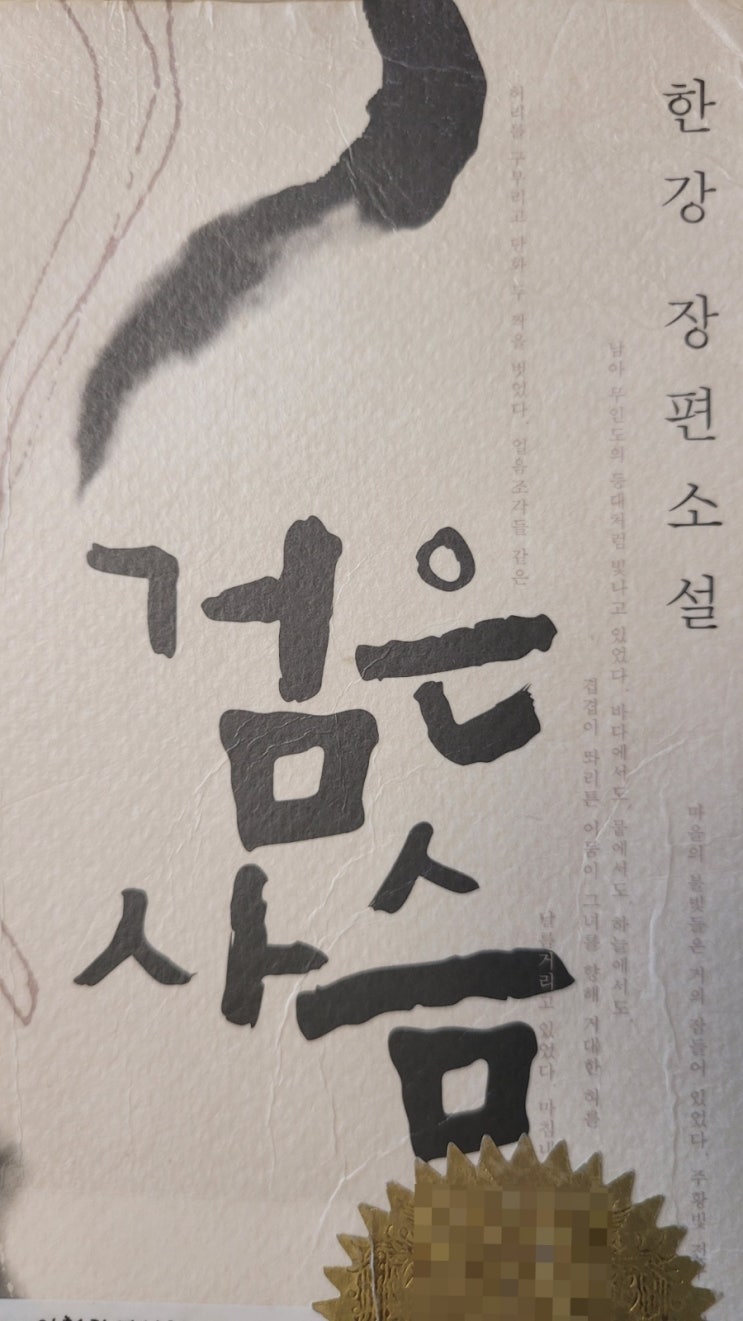 한강 장편소설
검은
사슴
허리를 구부리고 단화 두 짝을 벗었다. 얼음조각들 같은
남아 무인도의 등대처럼 빛나고 있었다. 바다에서도, 뭍에서도, 하늘에서도,
겹겹이 똬리튼 어둠이 그녀를 향해 거대한 혀를
날름거리고 있었다. 마침내
마음의 불빛들은 거의 잠들어 있었다. 주황빛